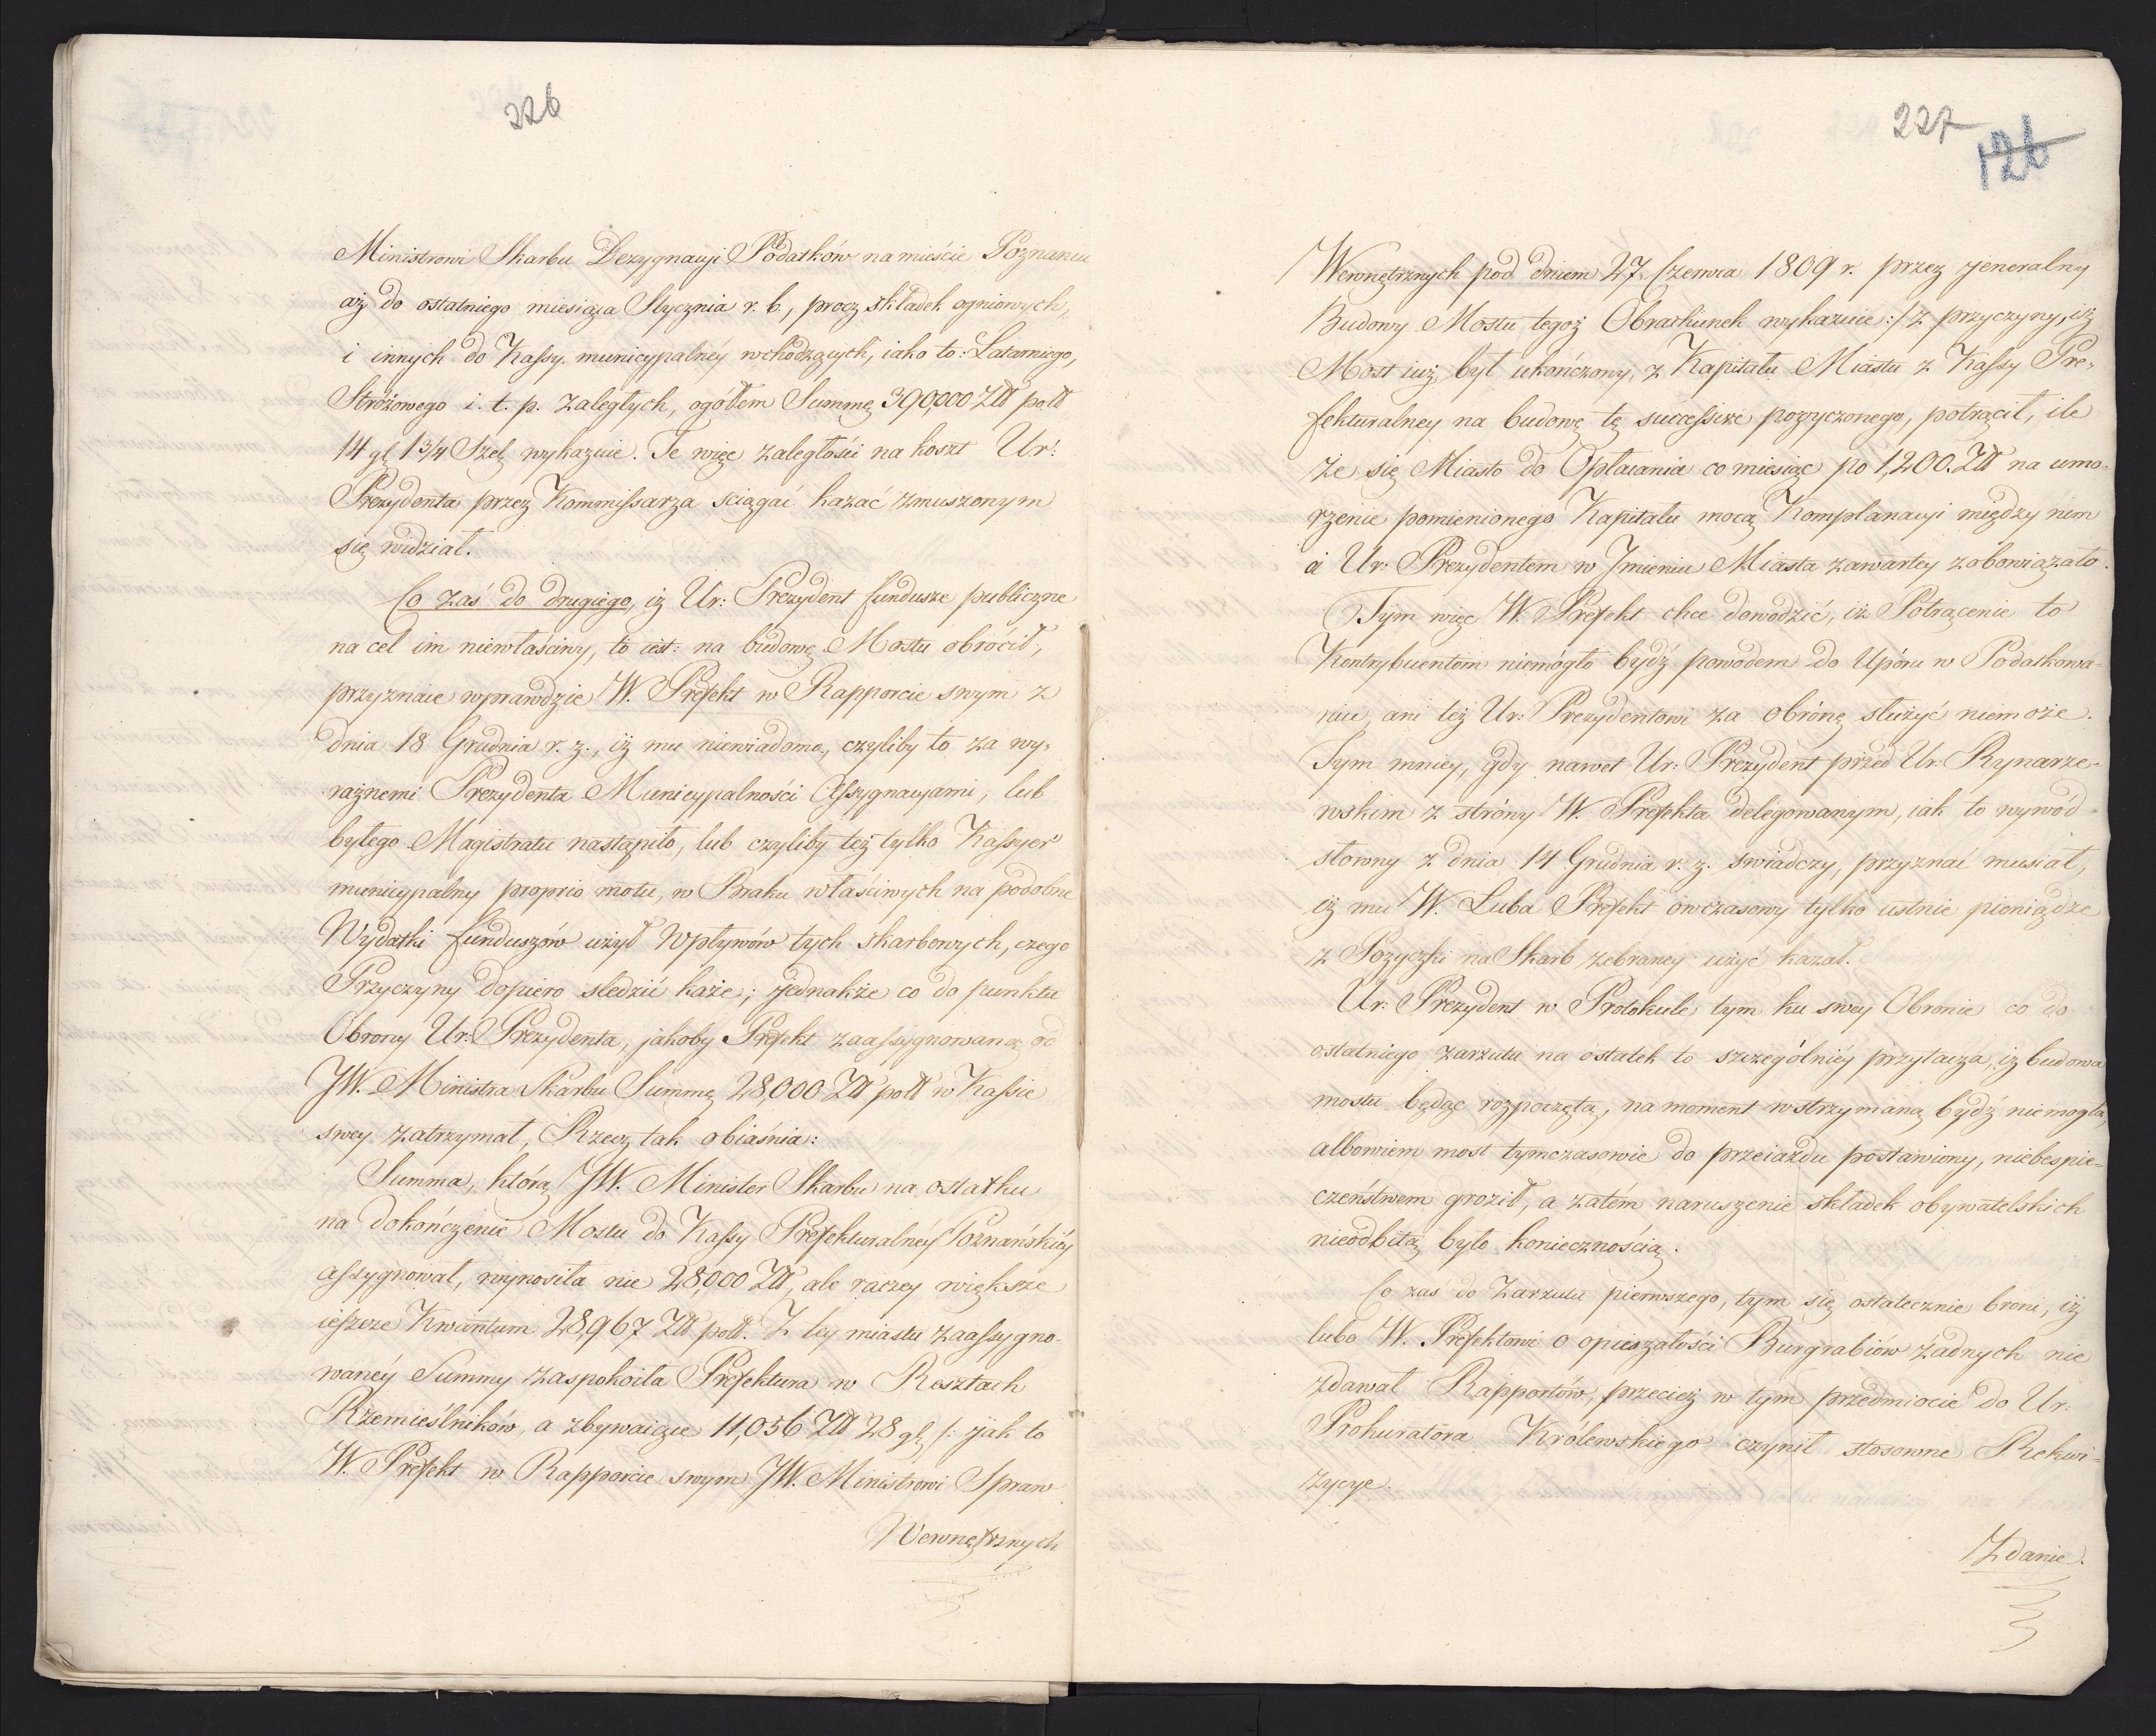 226
Ministrowi Skarbu Dezygnacyi Podatków na mieście Poznaniu
aż do ostatniego miesiąca Stycznia r. b., procz składek ogniowych,
i innych do Kassy municypalnéy wchodzących, iako to: Latarniego,
Stróżowego i. t. p. zaległych, ogółem Summę 390,000 Złł poll
14 gl 1¾ Szel wykazuie. Te więc zaległości na koszt Ur:
Prezydenta przez Kommissarza sciągać kazać zmuszonym
się widział.
Co zaś do drugiego, iż Ur: Prezydent fundusze publiczne
na cel im niewłaściwy, to iest: na budowę Mostu obrócił,
przyznaie wprawdzie W. Prefekt w Rapporcie swym z
dnia 18 Grudnia r. z., iż mu niewiadomo, czyliby to za wy-
raźnemi Prezydenta Municypalności Assygnacyami, lub
byłego Magistratu nastąpiło, lub czyliby też tylko Kassyer
municypalny proprio motu, w Braku właściwych na podobne
Wydatki funduszów użył Wpływów tych skarbowych, czego
Przyczyny dopiero sledzić każe; jednakże co do punktu
Obrony Ur: Prezydenta, jakoby Prefekt zaassygnowaną od
JW. Ministra Skarbu Summę 28,000 Złł poll w Kassie
swey zatrzymał, Rzecz tak obiaśnia:
Summa, którą JW. Minister Skarbu na ostatku
na dokończenie Mostu do Kassy Prefekturalnéy Poznańskiéy
assygnował, wynosiła nie 28,000 Złł, ale raczey większe
ieszcze Kwantum 28,967 Złł poll. Z téy miastu zaassygno-
wanéy Summy zaspokoiła Prefektura w Resztach
Rzemieślników, a zbywaiące 11,056 Złł 28 gl /: jak to
W. Prefekt w Rapporcie swym JW. Ministrowi Spraw
Wewnętrznych
227
126
Wewnętrznych pod dniem 27. Czerwca 1809 r. przez jeneralny
Budowy Mostu tegoż Obrachunek wykazuie :/ z przyczyny, iż
Most iuż był ukończony, z Kapitału Miastu z Kassy Pre-
fekturalney na budowę tę successive pożyczonego, potrącił, ile
że się Miasto do Opłacania co miesiąc po 1,200. Złł na umo-
rzenie pomienionego Kapitału mocą Komplanacyi między nim
a Ur: Prezydentem w Imieniu Miasta zawartey zobowiązało.
Tym więc W. Prefekt chce dowodzić, iż Potrącenie to
Kontrybuentom niemógło bydź powodem do Upóru w Podatkowa-
niu, ani też Ur: Prezydentowi za obrónę służyć niemoże.
Tym mniey, gdy nawet Ur: Prezydent przed Ur: Rynarze-
wskim z stróny W. Prefekta delegowanym, iak to wywód
słowny z dnia 14 Grudnia r. z. swiadczy, przyznać musiał,
iż mu W. Luba Prefekt owczasowy tylko ustnie pieniądze
z Pożyczki na Skarb zebraney użyć kazał.
Ur: Prezydent w Protokule tym ku swey Obronie co do
ostatniego zarzutu na ostatek to szczególniéy przytacza, iż budowa
mostu będąc rozpoczęta, na moment wstrzymaną bydź niemogła,
albowiem most tymczasowie do przeiazdu postawiony, niebespie-
czeństwem groził, a zatém naruszenie składek obywatelskich
nieodbitą było koniecznością.
Co zas do Zarzutu pierwszego, tym się ostatecznie broni, iż
lubo W. Prefektowi o opieszałości Burgrabiów żadnych nie
zdawał Rapportów, przecież w tym przedmiocie do Ur:
Prokuratora Królewskiego czynił stosowne Rekwi-
zycye.
Zdanie.